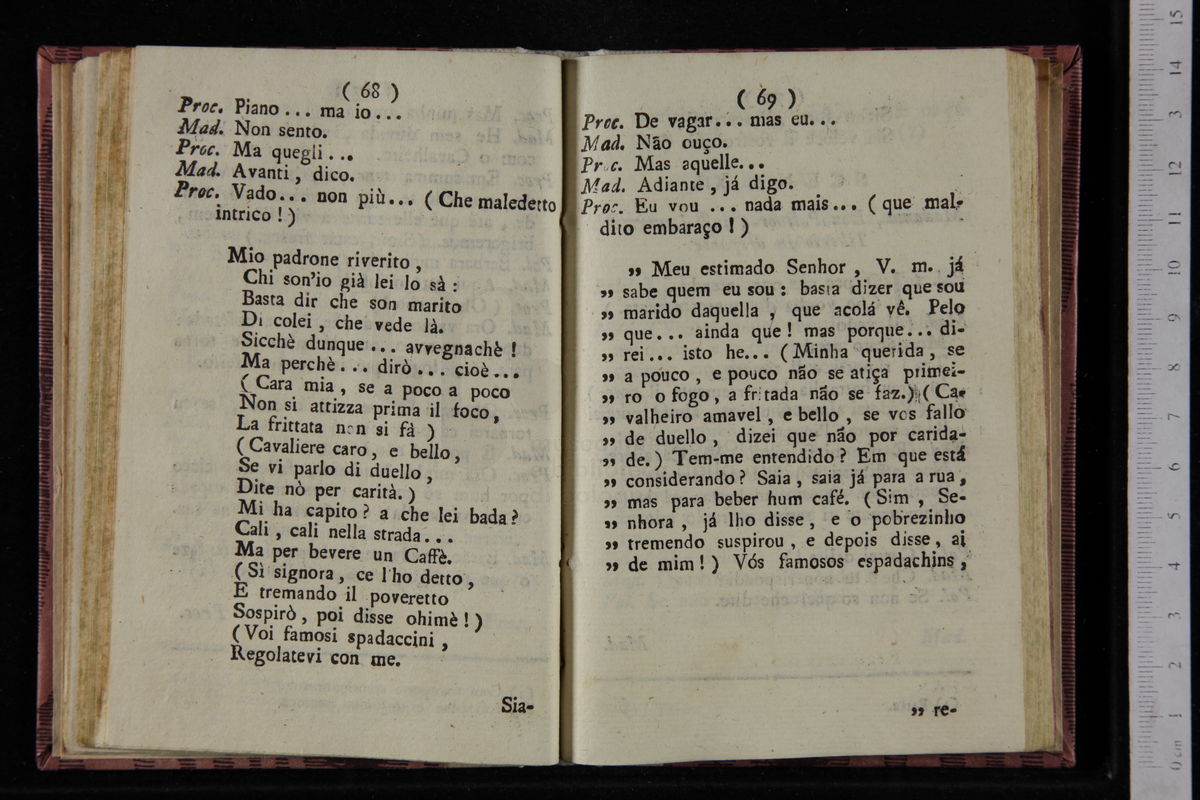 ( 68 )
Proc. Piano... ma io...
Mad. Non sento.
Proc. Ma quegli...
Mad. Avanti, dico.
Proc. Vado... non più... ( Che maledetto
intrico ! )
Mio padrone riverito,
Chi son'io già lei lo sà :
Basta dir che son marito
Di colei, che vede là.
Sicchè dunque... avvegnachè !
Ma perchè... dirò... cioè...
( Cara mia, se a poco a poco
Non si attizza prima il foco,
La frittata non si fà )
( Cavaliere caro, e bello,
Se vi parlo di duello,
Dite nò per carità. )
Mi ha capito ? a che lei bada ?
Cali, cali nella strada...
Ma per bevere un Caffè.
( Sì signora, ce l'ho detto,
E tremando il poveretto
Sospirò, poi disse ohimè ! )
( Voi famosi spadaccini,
Regolatevi con me.
Sia-
( 69 )
Proc. De vagar... mas eu...
Mad. Não ouço.
Proc. Mas aquelle...
Mad. Adiante, já digo.
Proc. Eu vou ... nada mais... ( que mal-
dito embaraço ! )
„ Meu estimado Senhor, V. m. já
„ sabe quem eu sou : basta dizer que sou
„ marido daquella, que acolá vê. Pelo
„ que... ainda que ! mas porque... di-
„ rei... isto he... ( Minha querida, se
„ a pouco, e pouco não se atiça primei-
„ ro o fogo, a fritada não se faz. ) ( Ca-
„ valheiro amavel, e bello, se vos fallo
„ de duello, dizei que não por carida-
„ de. ) Tem-me entendido ? Em que está
„ considerando ? Saia, saia já para a rua,
„ mas para beber hum café. ( Sim, Se-
„ nhora, já lho disse, e o pobrezinho
„ tremendo suspirou, e depois disse, ai
„ de mim ! ) Vós famosos espadachins,
„ re-
15
14
13
12
11
10
9
8
7
6
5
4
3
2
1
0 cm